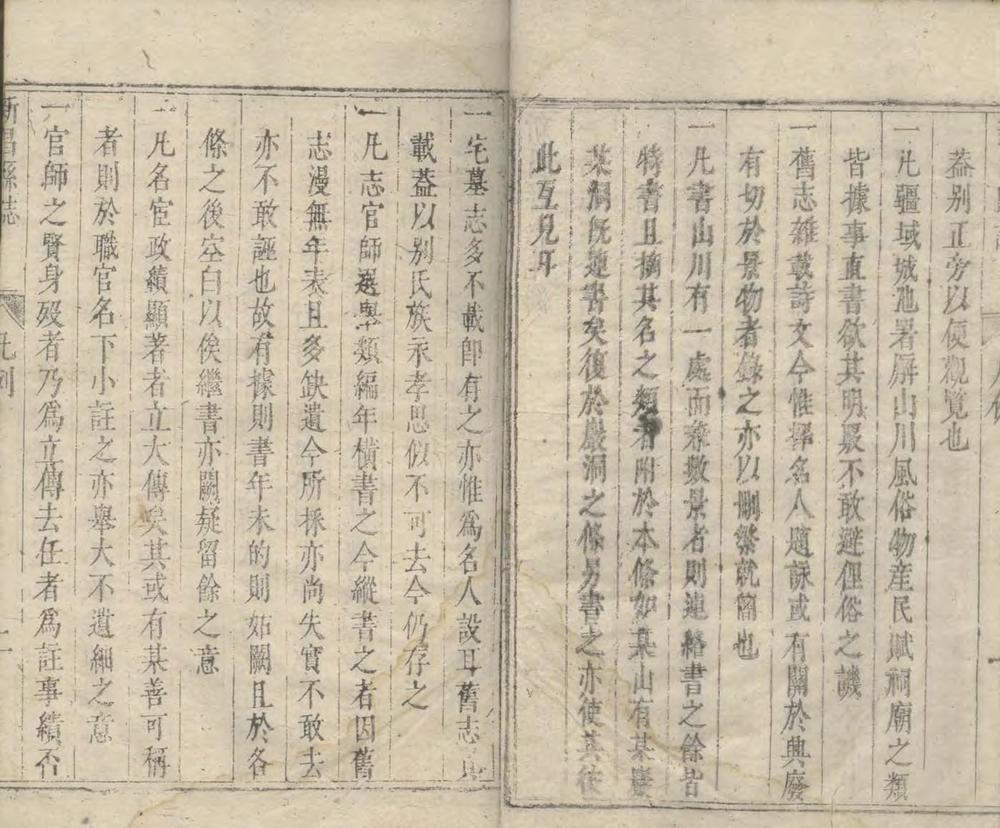 葢别正旁以便觀覽也
一凡疆域城池署廨山川風俗物産民賦祠廟之類
皆據事直書欲其明覈不敢避俚俗之譏
一舊志雜載詩文今惟擇名人題詠或有關於典廢
有切於景物者錄之亦以刪蘩就簡也
一凡書山川有一處而兼數景者則連絡書之餘皆
特書且摘其名之類者附於本條如某山有某巖
某洞旣連書矣復於巖洞之條另書之亦使其彼
此互見耳
一宅墓志多不載即有之亦惟爲名人設耳舊志
載葢以别氏族示孝思似不可去今仍存之
一凡志官師選舉類編年橫書之今縱書之者因舊
志漫無年表且多缺遺今所採亦尚失實不敢去
亦不敢誣也故有據則書年未的則姑闕且於各
條之後空白以俟繼書亦闕疑留餘之意
一凡名宦政績顯著者立大傳矣其或有某善可稱
者則於職官名下小註之亦舉大不遺細之意
一官師之賢身歿者乃爲立傳去任者爲註事績否
新昌縣志
凡例